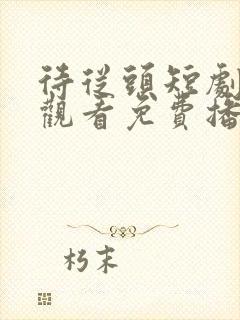 待從頭短劇
觀看免費播
朽末